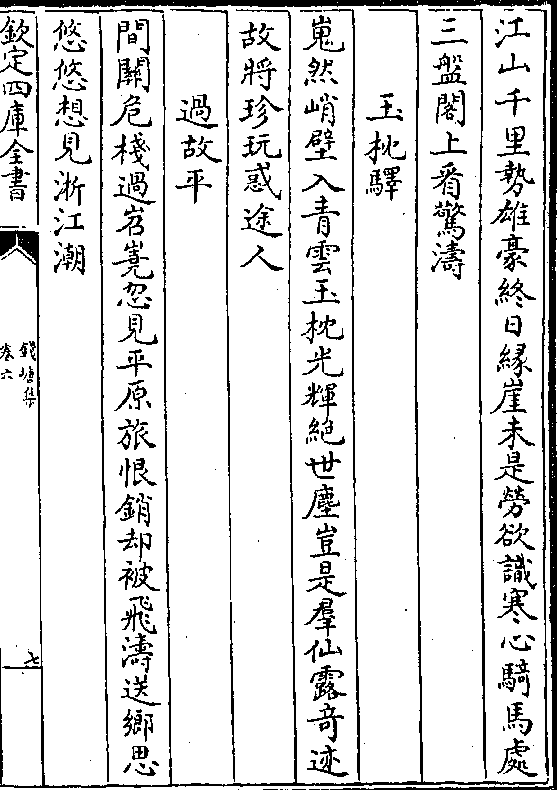 江山千里勢雄豪終日緣崖未是勞欲識寒心騎馬處
三盤閣上看驚濤
玉枕驛
嵬然峭壁入青雲玉枕光輝絶世塵豈是羣仙露竒迹
故將珍玩惑途人
過故平
間關危棧過岧嶤忽見平原旅恨銷却被飛濤送鄉思
悠悠想見浙江潮
欽定四庫全書
錢塘集
卷六
七